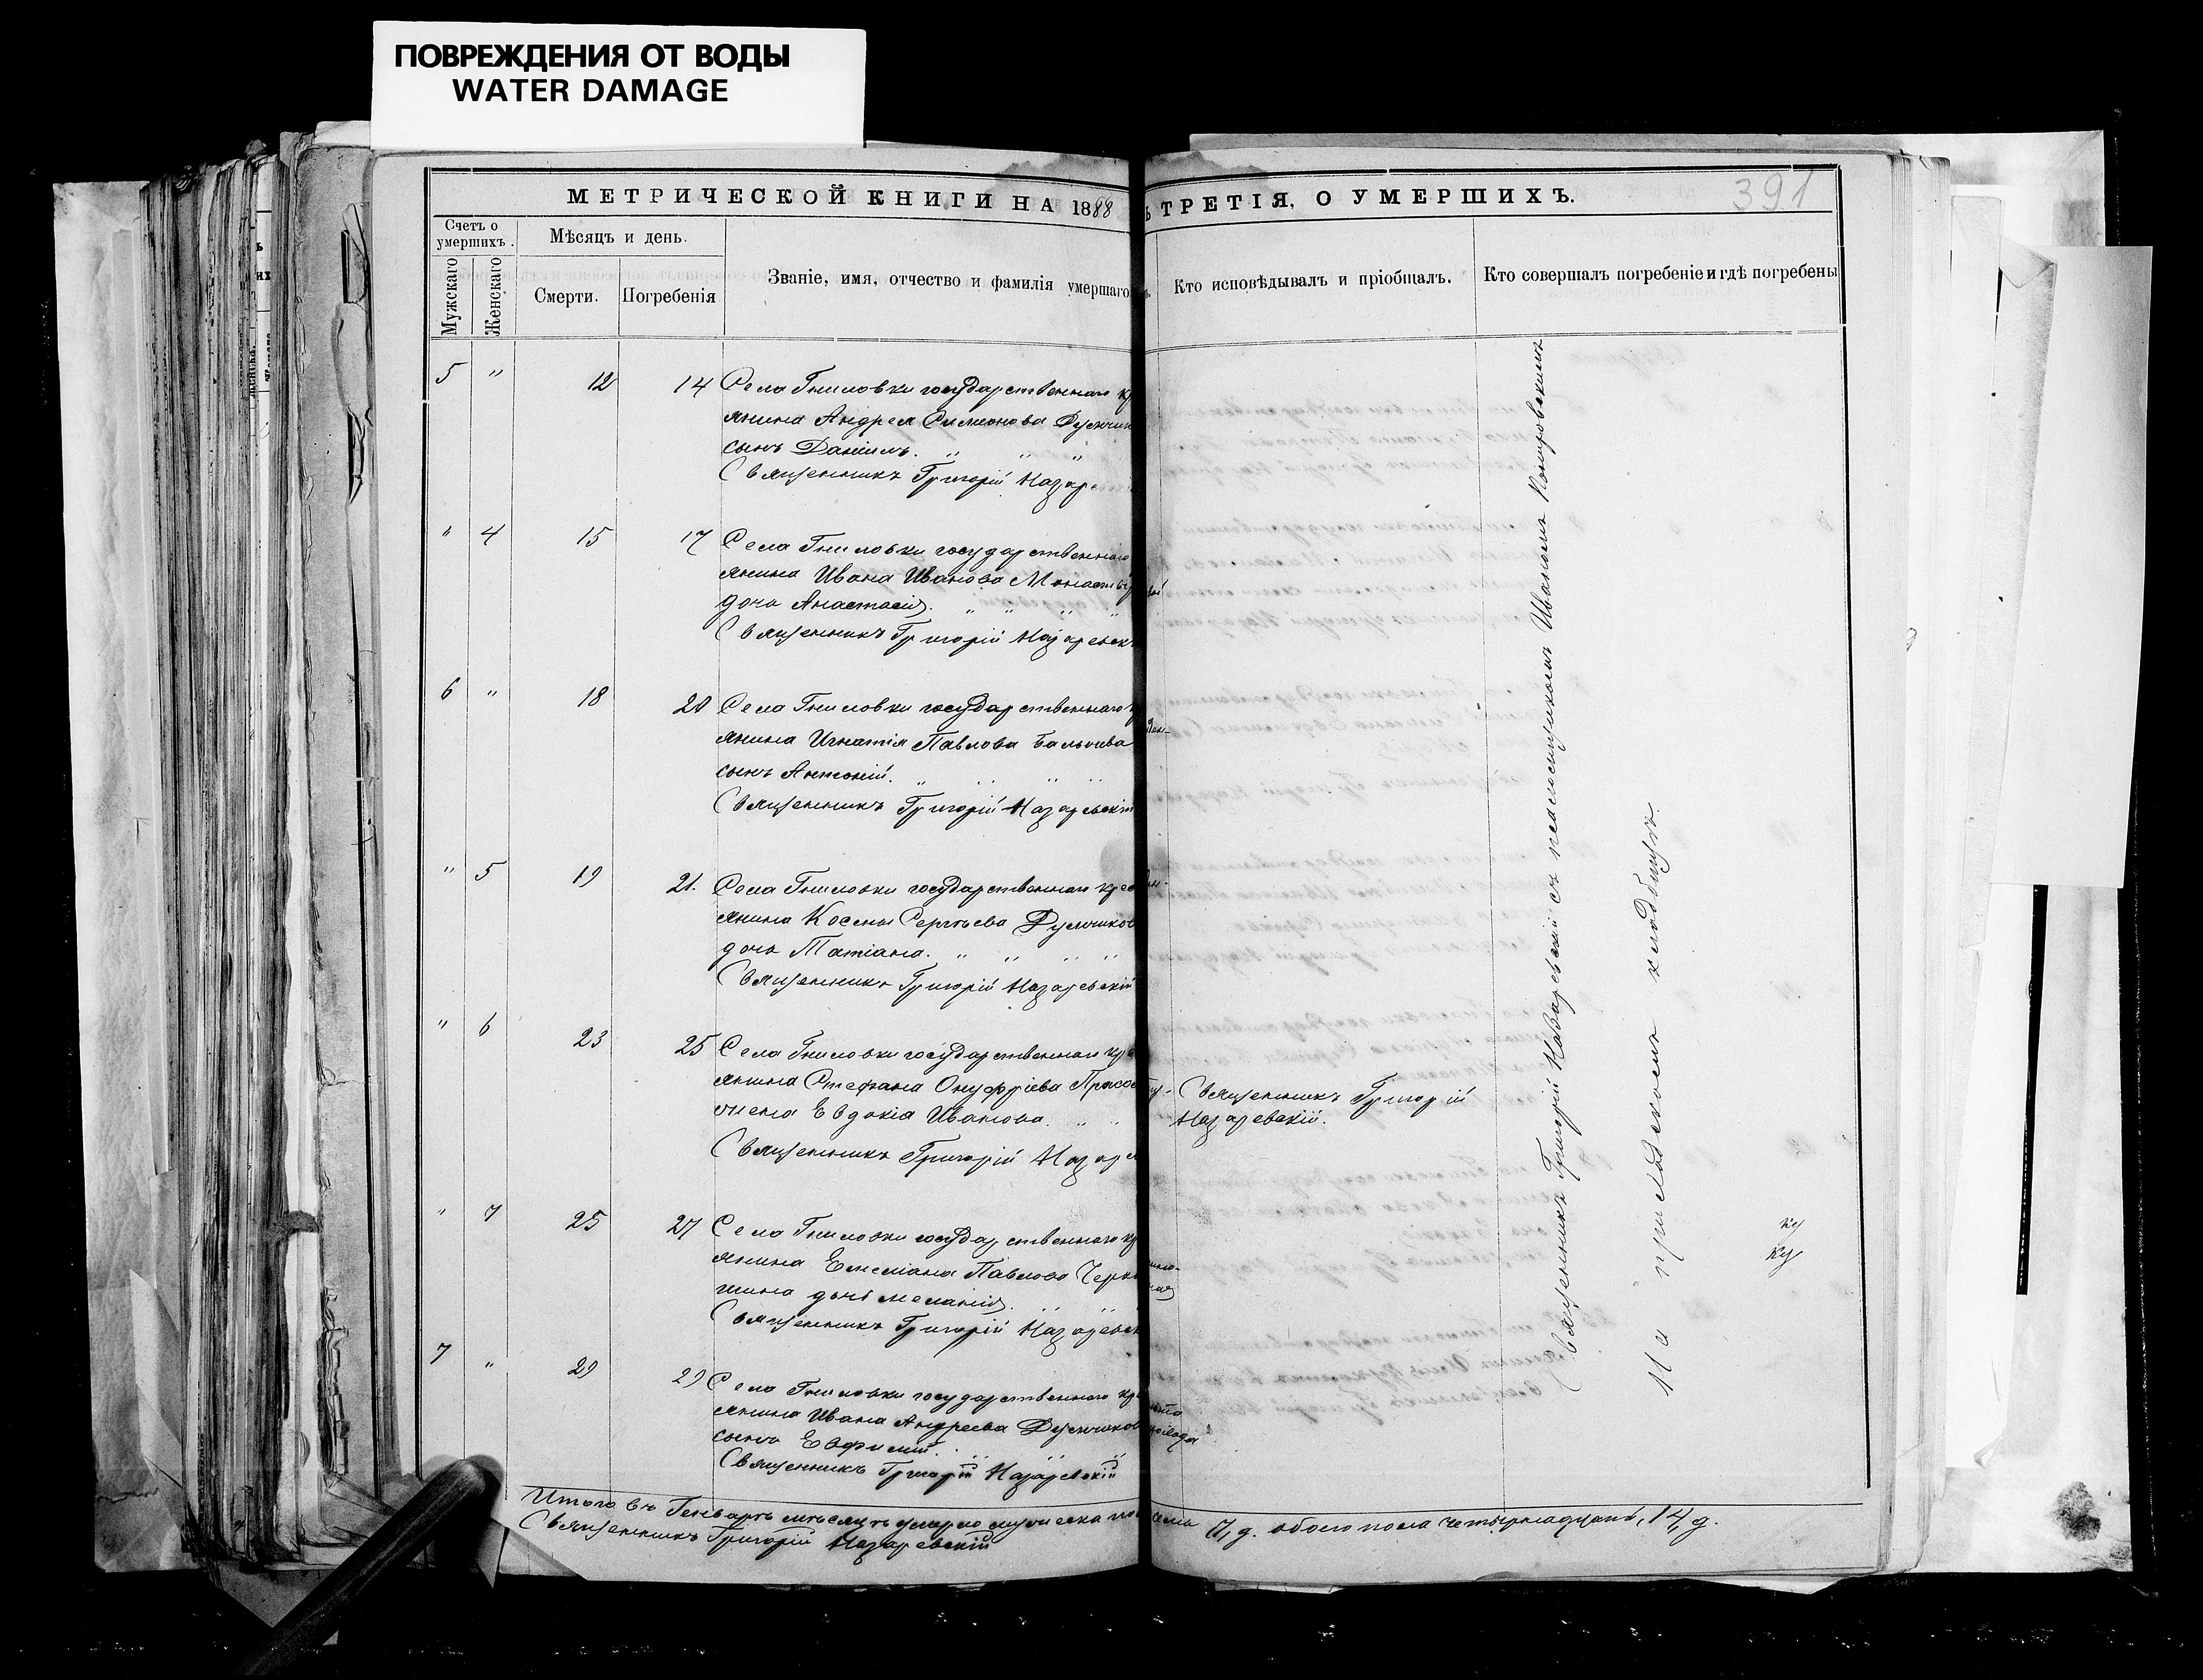 ПОВРЕЖДЕНИЯ ОТ ВОДЫ
WATER DAMAGE
МЕТРИЧЕСКОЙ КНИГИ НА 1888
ТРЕТІЯ, О УМЕРШИХЪ.
391
Счетъ о умершихъ.
Мужскаго
Женскаго
Мѣсяцъ и день.
Смерти.
Погребенія
Званіе, имя, отчество и фамилія умершаго
Кто исповѣдывалъ и пріобщалъ.
Кто совершалъ погребеніе и гдѣ погребены
5 " 12 14 Села Гниловки государственнаго
янина Андрея Симионова
сынъ Даніилъ. " " "
Священникъ Григорій
" 4 15 17 Села Гниловки государственнаго
янина Ивана Иванова
дочь Анастасія. " " " "
Священникъ Григорій
6 " 18 20 Села Гниловки государственнаго
янина Игнатія Павлова
сынъ Антоній. " " " "
Священникъ Григорій
" 5 19 21. Села Гниловки государственнаго
янина Космы Сергѣева
дочь Татіана. " " " "
Священникъ Григорій Назаревскій
" 6 23 25 Села Гниловки государственнаго
янина Стефана Онуфріева
жена Евдокія Иванова. " "
Священникъ Григорій
Священникъ Григорій
Назаревскій.
" 7 25 27 Села Гниловки государственнаго
янина Емеліана Павлова
дочь Меланія. " "
Священникъ Григорій
7 " 29 29 Села Гниловки государственнаго
янина Ивана Андреева
сынъ Евфимій. " "
Священникъ Григорій Назаревскій
Священникъ Григорій Назаревскій съ псаломщикомъ Иваномъ
На приходскомъ кладбищѣ.
Итого въ Генварѣ мѣсяцѣ умерло мужеска
7, д. обоего пола четырнадцать, 14, д.
Священникъ Григорій Назаревскій